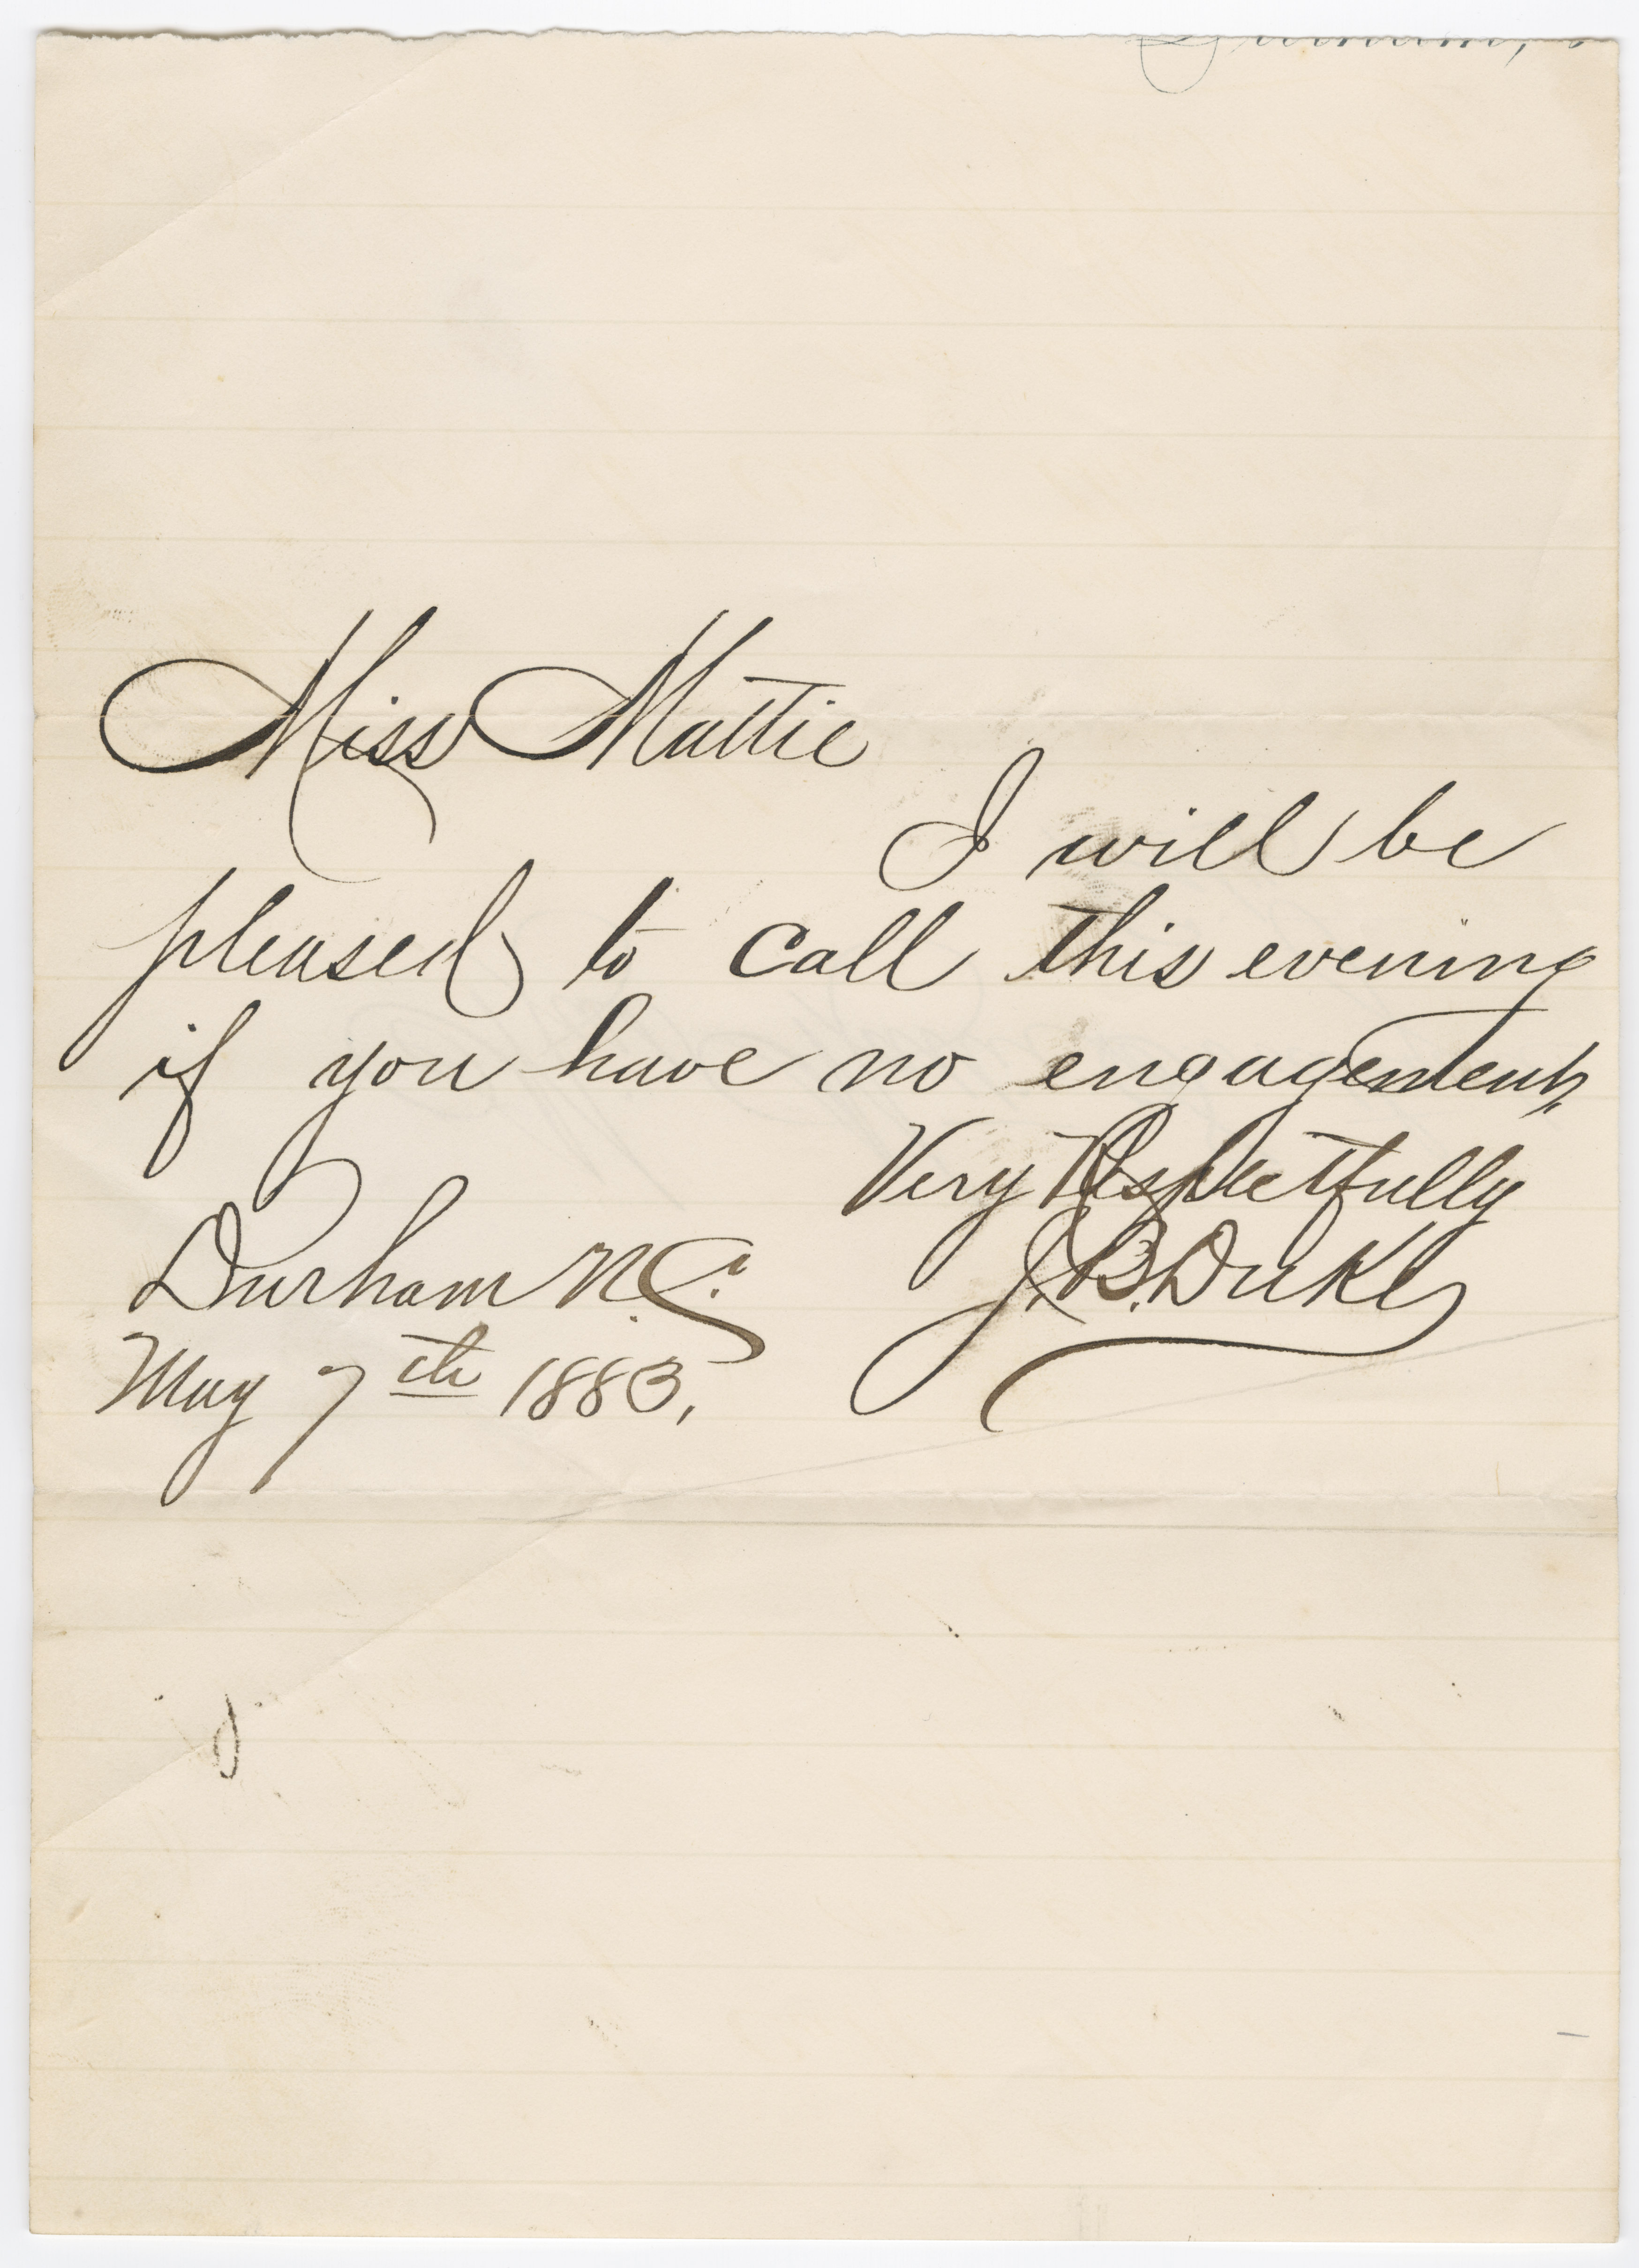 Miss Mattie
I will be
pleased to call this evening
if you have no engagement,
Very Respectfully
J. B. Duke
Durham N.C.
May 7th 1883,